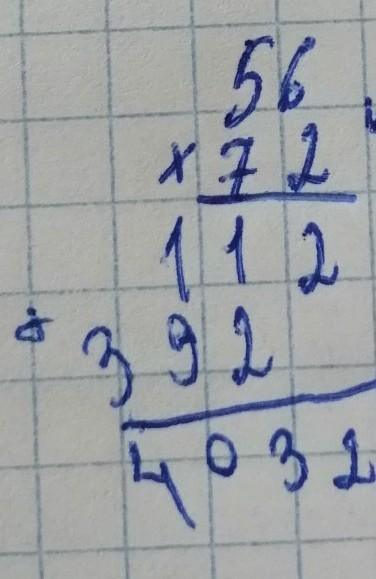 56
× 72
112
+ 392
4032